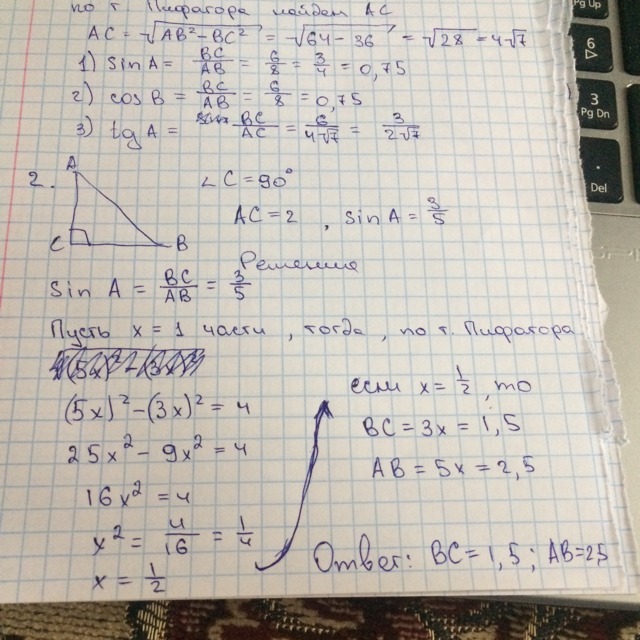 по т. Пифагора найдем AC
AC = √AB² - BC² = √64 - 36 = √28 = 4√7
1) sin A = BC/AB = 6/8 = 3/4 = 0,75
2) cos B = BC/AB = 6/8 = 0,75
3) tg A = BC/AC = 6/4√7 = 3/2√7
2.
A
C
B
∠C = 90°
AC = 2 , sin A = 3/5
Решение
Sin A = BC/AB = 3/5
Пусть x = 1 части , тогда , по т. Пифагора
(5x)² - (3x)² = 4
25x² - 9x² = 4
16x² = 4
x² = 4/16 = 1/4
x = 1/2
если x = 1/2 , то
BC = 3x = 1,5
AB = 5x = 2,5
Ответ: BC = 1,5 ; AB = 25
Pg Up
6
3
Pg Dn
.
Del